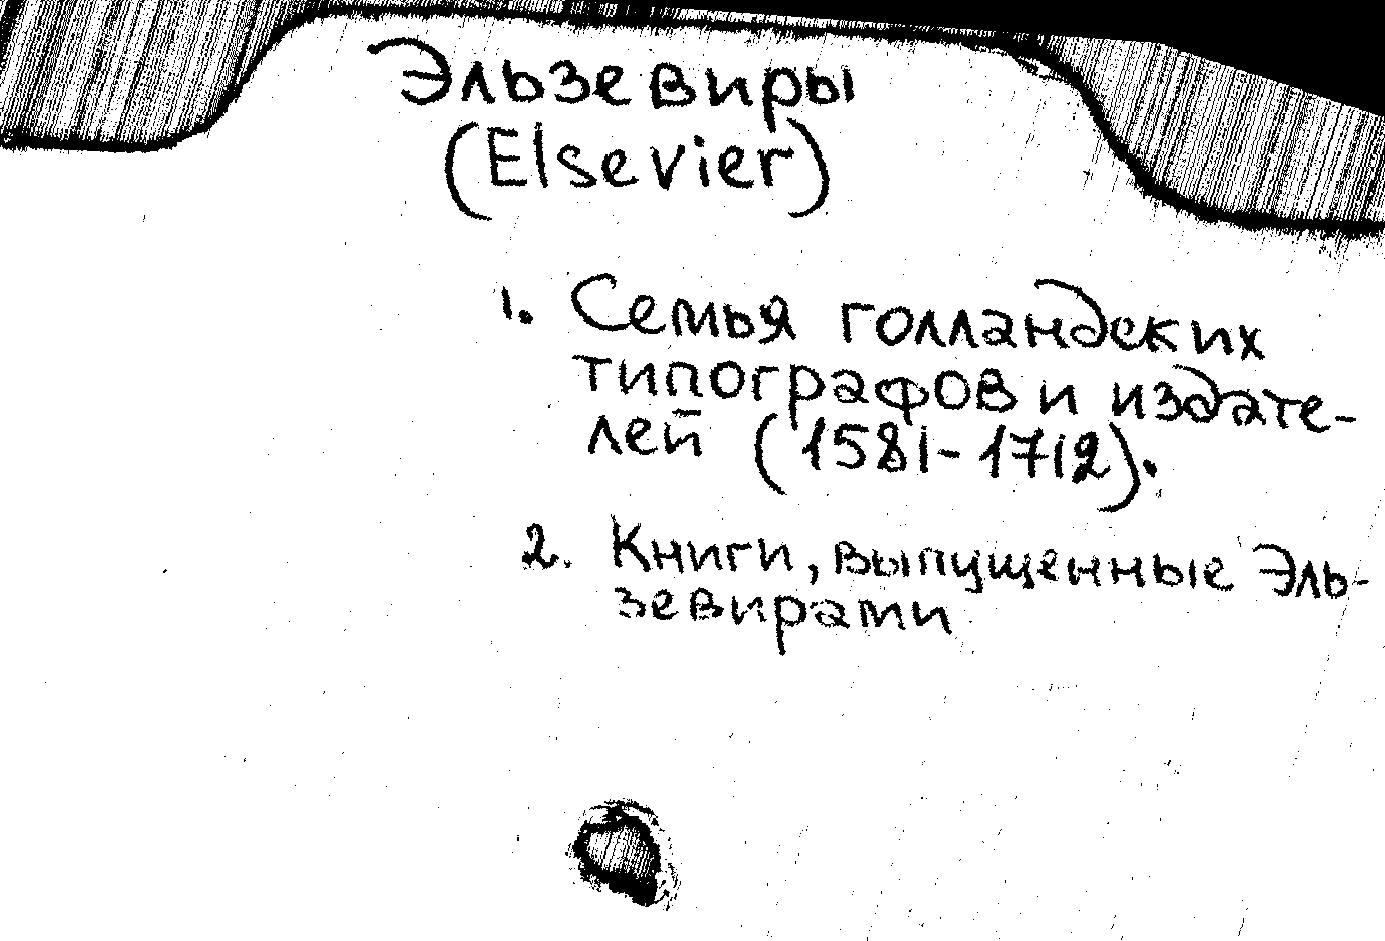 Эльзевиры
(Elsevier)
1. Семья голландских
типографов и издате-
лей (1581-1712).
2. Книги, выпущенные Эль-
зевирами